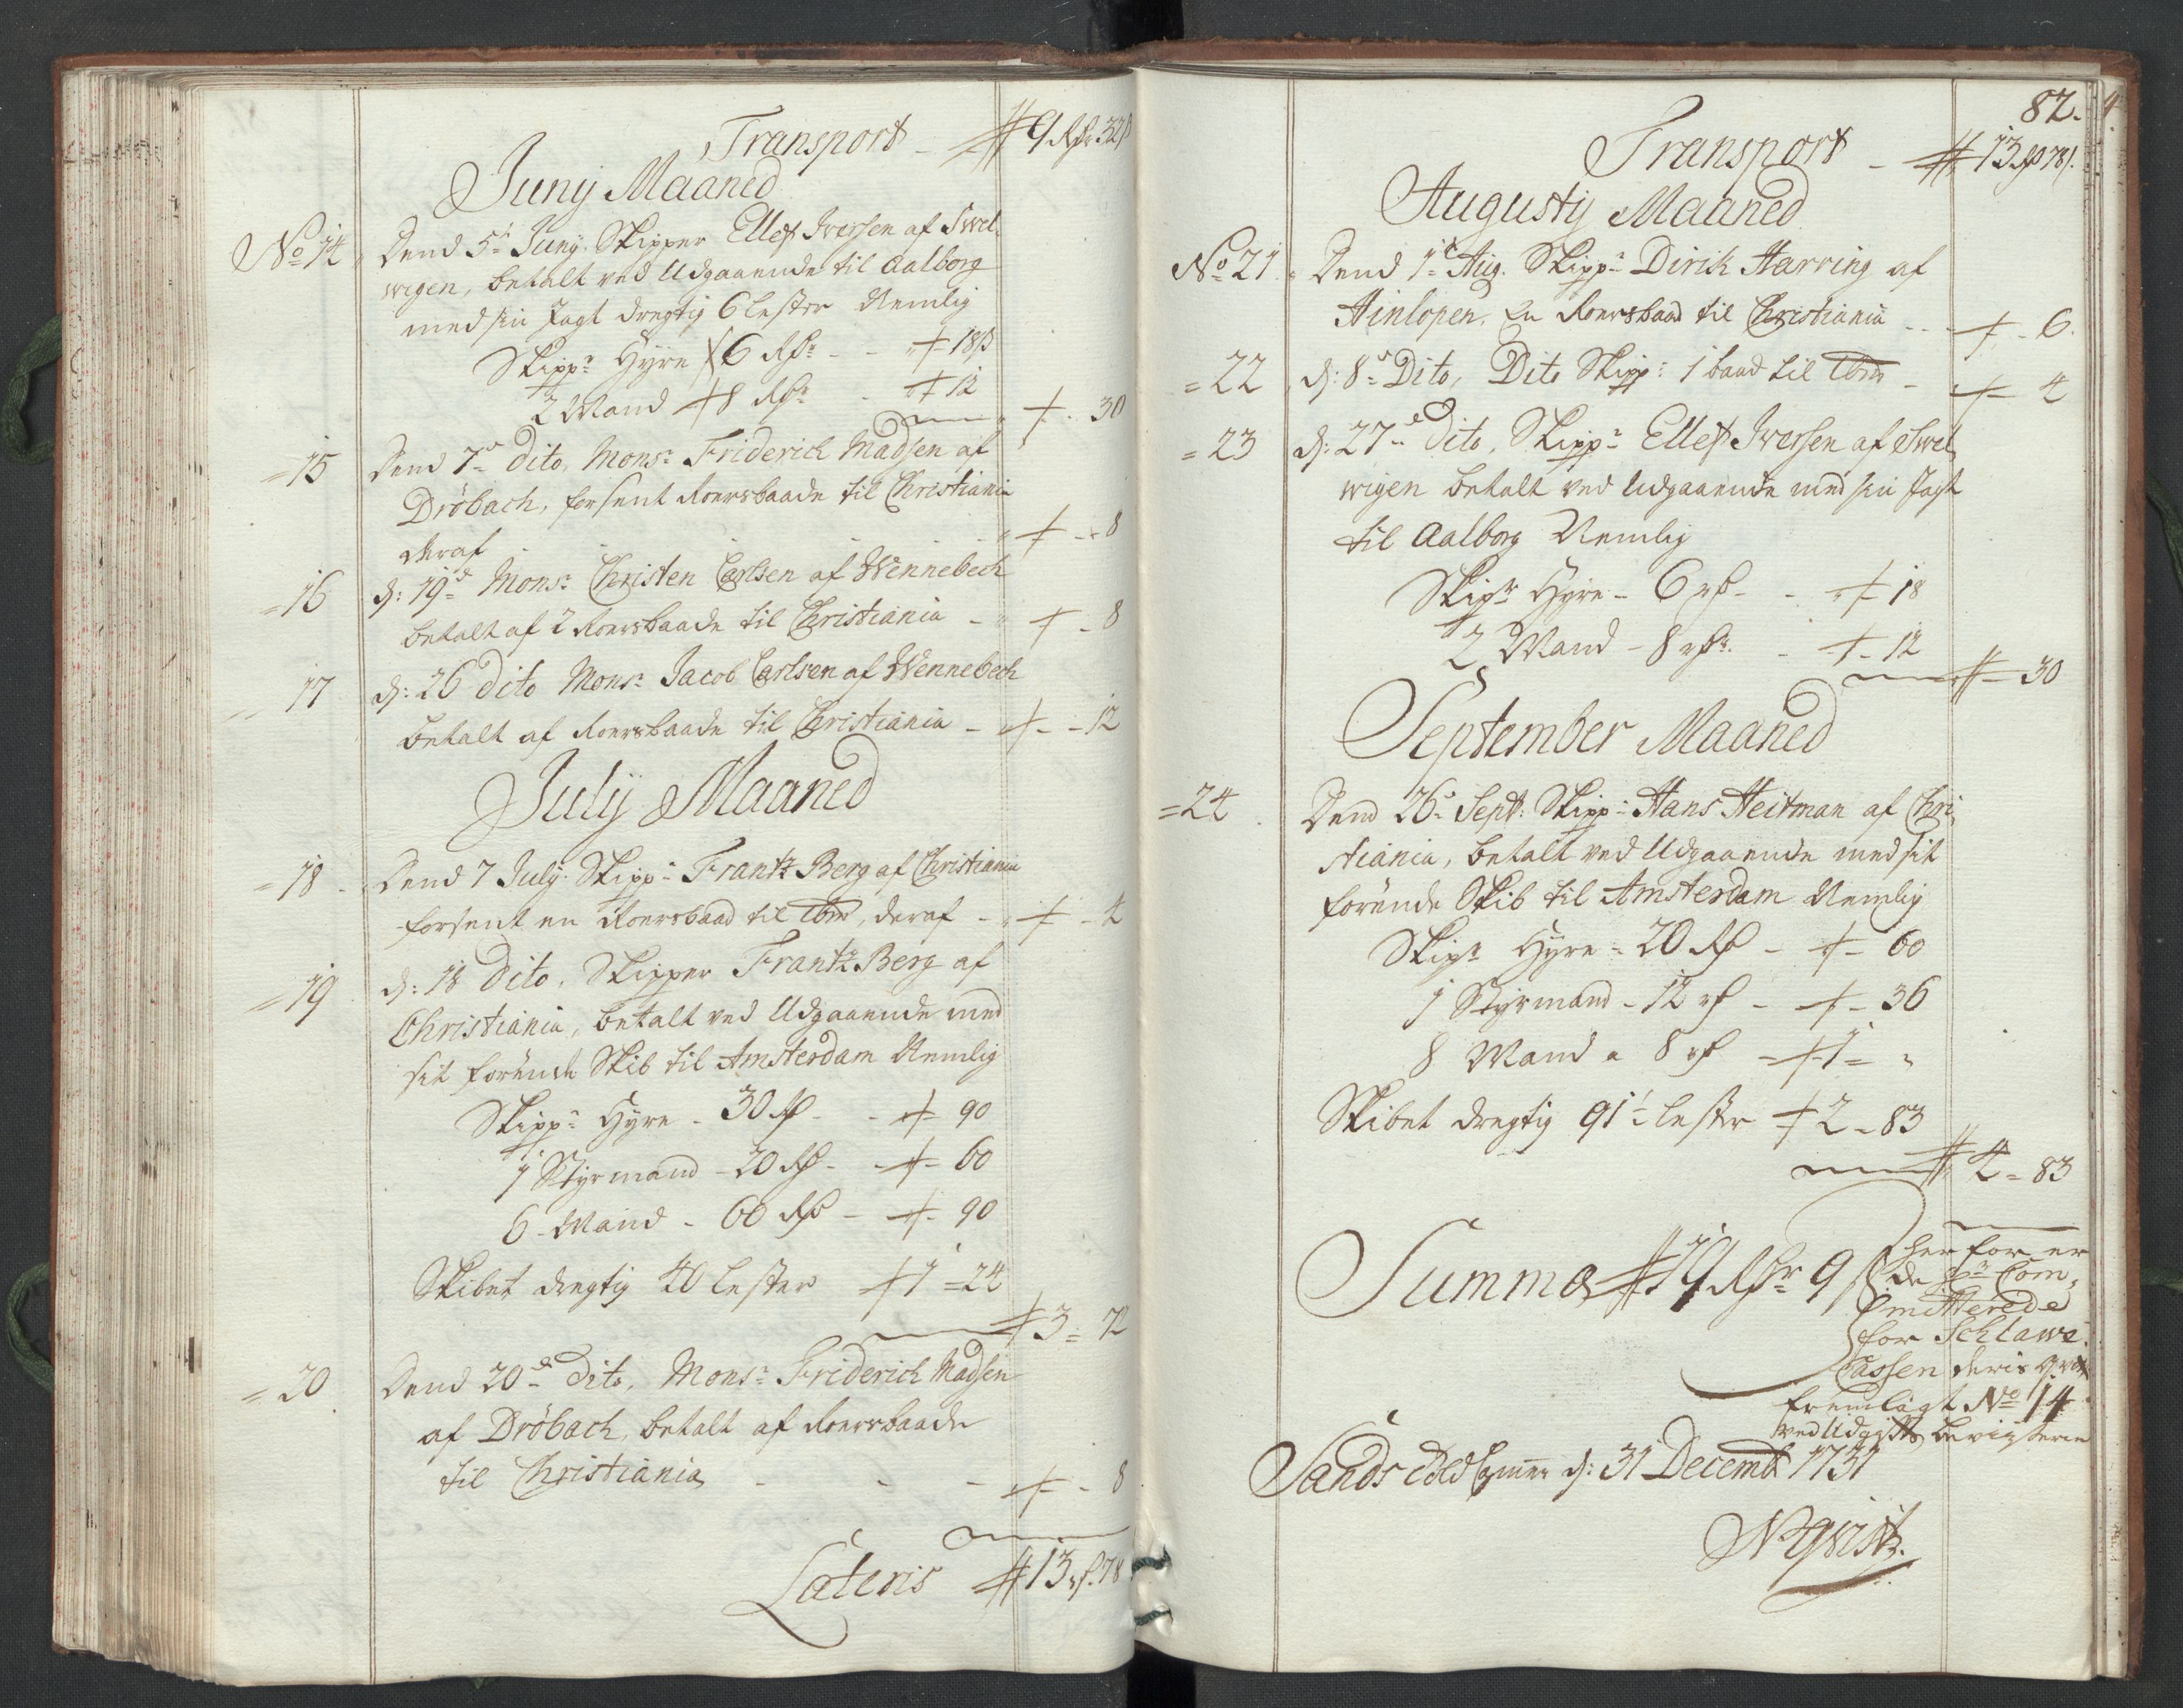 Transport - # 9 Rdr 32 ß
Junij Maaned
No 14 Dend 5te Junij. Skipper Ellef Iversen af Swel-
wigen, betalt ved Udgaaende til Aalborg
med sin Jagt dregtig 6 lester Nemlig
Skippr Hyre 6 Rdr - - 18 ß
2 Mand 8 Rdr - 12
30
= 15 Dend 7de dito, Monsr Friderich Madsen af
Dröbach, forsent Roersbaade til Christiania
deraf - - - 8
= 16 d: 19de Monsr Christen Carlsen af Wennebech
betalt af 2 Roersbaade til Christiania - 8
17 d: 26 dito Monsr Jacob Carlsen af Wennebech
betalt af Roersbaade til Christiania - - 12
Julij Maaned
= 18 Dend 7 Julij. Skippr Frantz Berg af Christiania
forsent en Roersbaad til Ibm, deraf - 4
= 19 d: 18 dito, Skipper Frantz Berg af
Christiania, betalt ved Udgaaende med
sit förende Skib til Amsterdam Nemlig
Skippr Hyre - 30 Rd - 90
1 Styrmand - 20 Rd - 60
6 Mand - 60 Rd - 90
Skibet dregtig 40 lester 1 = 24
3 = 72
= 20 Dend 20de dito, Monsr Friderich Madsen
af Dröbach, betalt af Roersbaade
til Christiania - - - 8
Lateris # 13 rd 78
82.
Transport - # 13 rd 78 ß.
Augustij Maaned
No 21. Dend 1te Aug. Skippr Dirik Harring af
Hinlopen, En Roersbaad til Christiania - - 6.
= 22 d: 8de Dito, Dito Skippr 1 baad til Ibm - 4
= 23 d: 27de dito, Skippr Ellef Iversen af Swel
wigen betalt ved Udgaaende med sin Jagt
til Aalborg Nemlig
Skipr Hyre - 6 rd - - 18
2 Mand - 8 rdr. - 12
# - 30
September Maaned
= 24. Dend 26de Sept: Skippr Hans Heitman af Chri,
stiania, betalt ved Udgaaende med sit
förende Skib til Amsterdam Nemlig
Skipr Hyre - 20 Rd - 60
1 Styrmand - 12 rd - 36
8 Mand a 8 rd - 1 = "
Skibet dregtig 91½ lester 2 = 83
# 4 = 83
Summa # 19 Rdr 9 ß
her for er
de Hr Com,
mitterede
for Schlawe
Cassen deris
fremlagt No 14
ved Udgifts
Sands d: 31 Decembr 1731
N Qvist.